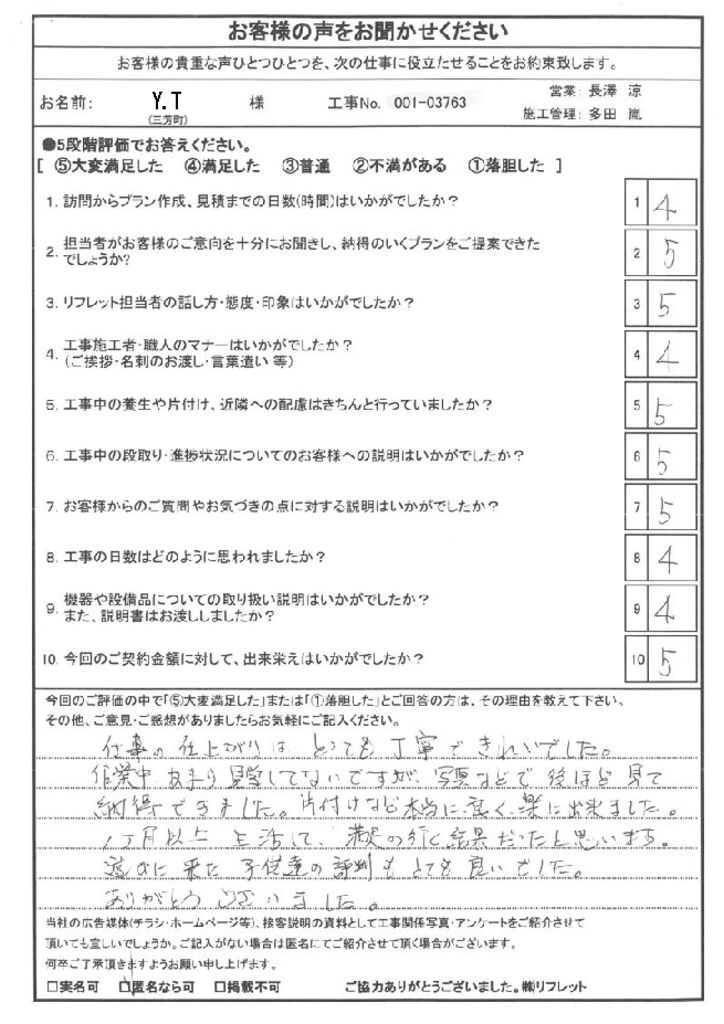 お客様の声をお聞かせください
お客様の貴重な声ひとつひとつを、次の仕事に役立たせることをお約束致します。
お名前: Y.T 様 工事No. 001-03763 営業: 長澤 涼
(三芳町) 施工管理: 多田 嵐
●5段階評価でお答えください。
[ ⑤大変満足した ④満足した ③普通 ②不満がある ①落胆した ]
1. 訪問からプラン作成、見積までの日数(時間)はいかがでしたか? 1 4
2. 担当者がお客様のご意向を十分にお聞きし、納得のいくプランをご提案できた
でしょうか? 2 5
3. リフレット担当者の話し方・態度・印象はいかがでしたか? 3 5
4. 工事施工者・職人のマナーはいかがでしたか?
(ご挨拶・名刺のお渡し・言葉遣い 等) 4 4
5. 工事中の養生や片付け、近隣への配慮はきちんと行っていましたか? 5 5
6. 工事中の段取り・進捗状況についてのお客様への説明はいかがでしたか? 6 5
7. お客様からのご質問やお気づきの点に対する説明はいかがでしたか? 7 5
8. 工事の日数はどのように思われましたか? 8 4
9. 機器や設備品についての取り扱い説明はいかがでしたか?
また、説明書はお渡ししましたか? 9 4
10. 今回のご契約金額に対して、出来栄えはいかがでしたか? 10 5
今回のご評価の中で「⑤大変満足した」または「①落胆した」とご回答の方は、その理由を教えて下さい。
その他、ご意見・ご感想がありましたらお気軽にご記入ください。
仕事の仕上がりは とても丁寧できれいでした。
作業中 あまり見学してないですが、写真などで後ほど見て
納得できました。片付けなど本当に良く、楽に出来ました。
1ヶ月以上 生活して、満足の行く結果だったと思います。
遊びに来た 子供達の評判も とても良いでした。
ありがとうございました。
当社の広告媒体(チラシ・ホームページ等)、接客説明の資料として工事関係写真・アンケートをご紹介させて
頂いても宜しいでしょうか。ご記入がない場合は匿名にてご紹介させて頂く場合がございます。
何卒ご了承頂きますようお願い申し上げます。
□実名可 □匿名なら可 □掲載不可 ご協力ありがとうございました。㈱リフレット